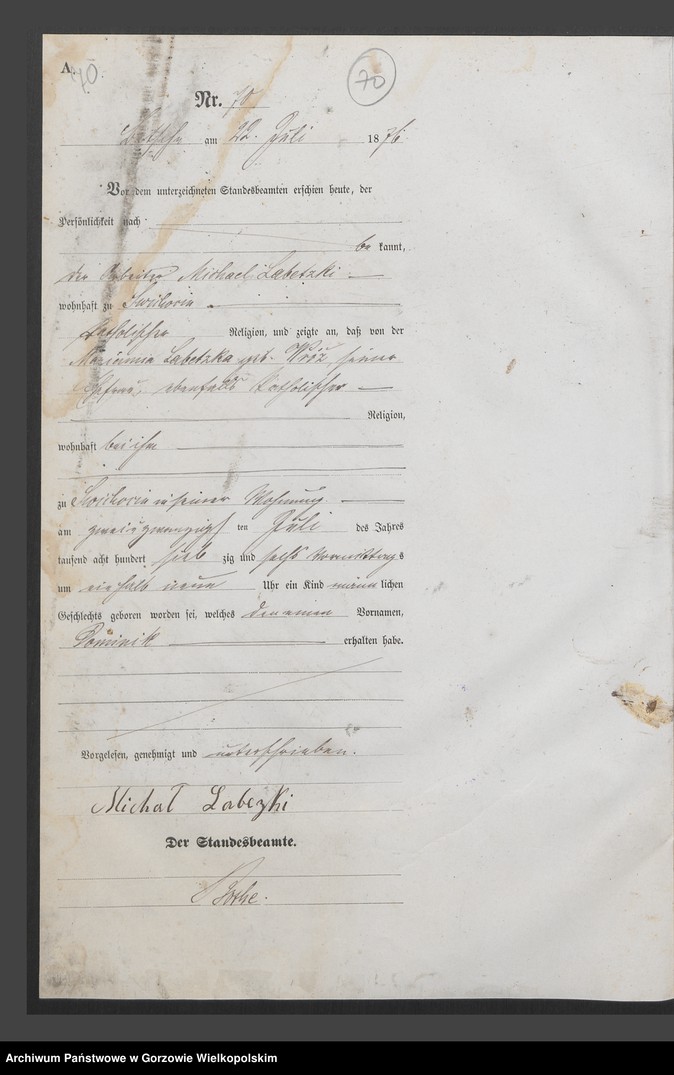 A. 70
70
Nr. 70
am 22. Juli 1876
Vor dem unterzeichneten Standesbeamten erschien heute, der
Persönlichkeit nach
be kannt,
der Arbeiter Michael Labetzki
wohnhaft zu
katholischer Religion, und zeigte an, daß von der
Labetzka geb. seiner
Ehefrau, ebenfalls katholischer
Religion,
wohnhaft bei ihm
zu in seiner Wohnung
am zweiundzwanzigsten ten Juli des Jahres
tausend acht hundert sieb zig und sechs Vormittags
um ein halb neun Uhr ein Kind männ lichen
Geschlechts geboren worden sei, welches den einen Vornamen,
Dominik erhalten habe.
Vorgelesen, genehmigt und unterschrieben.
Michał Labezki
Der Standesbeamte.
Archiwum Państwowe w Gorzowie Wielkopolskim